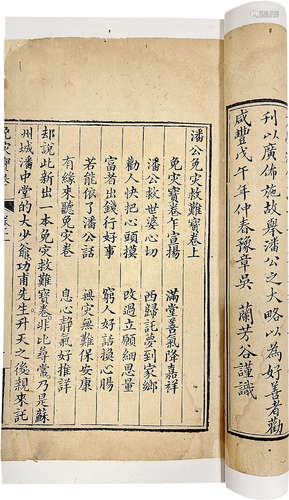 刊以廣佈施故舉潘公之大略以為好善者勸
咸豐戊午年仲春豫章吳 蘭芳谷謹識
潘公免灾救難寶卷上
免灾寶卷乍宣揚 滿堂善氣降嘉祥
潘公救世婆心切 西歸託夢到家鄉
勸人快把心頭摸 改過立願細思量
富者出錢行好事 窮人好話換心腸
若能依了潘公話 無灾無難保安康
有緣來聽免灾卷 息心静氣好推詳
却說此新出一本免灾救難寶卷非比尋常乃是蘇
州城潘中堂的大少爺功甫先生升天之後親來託